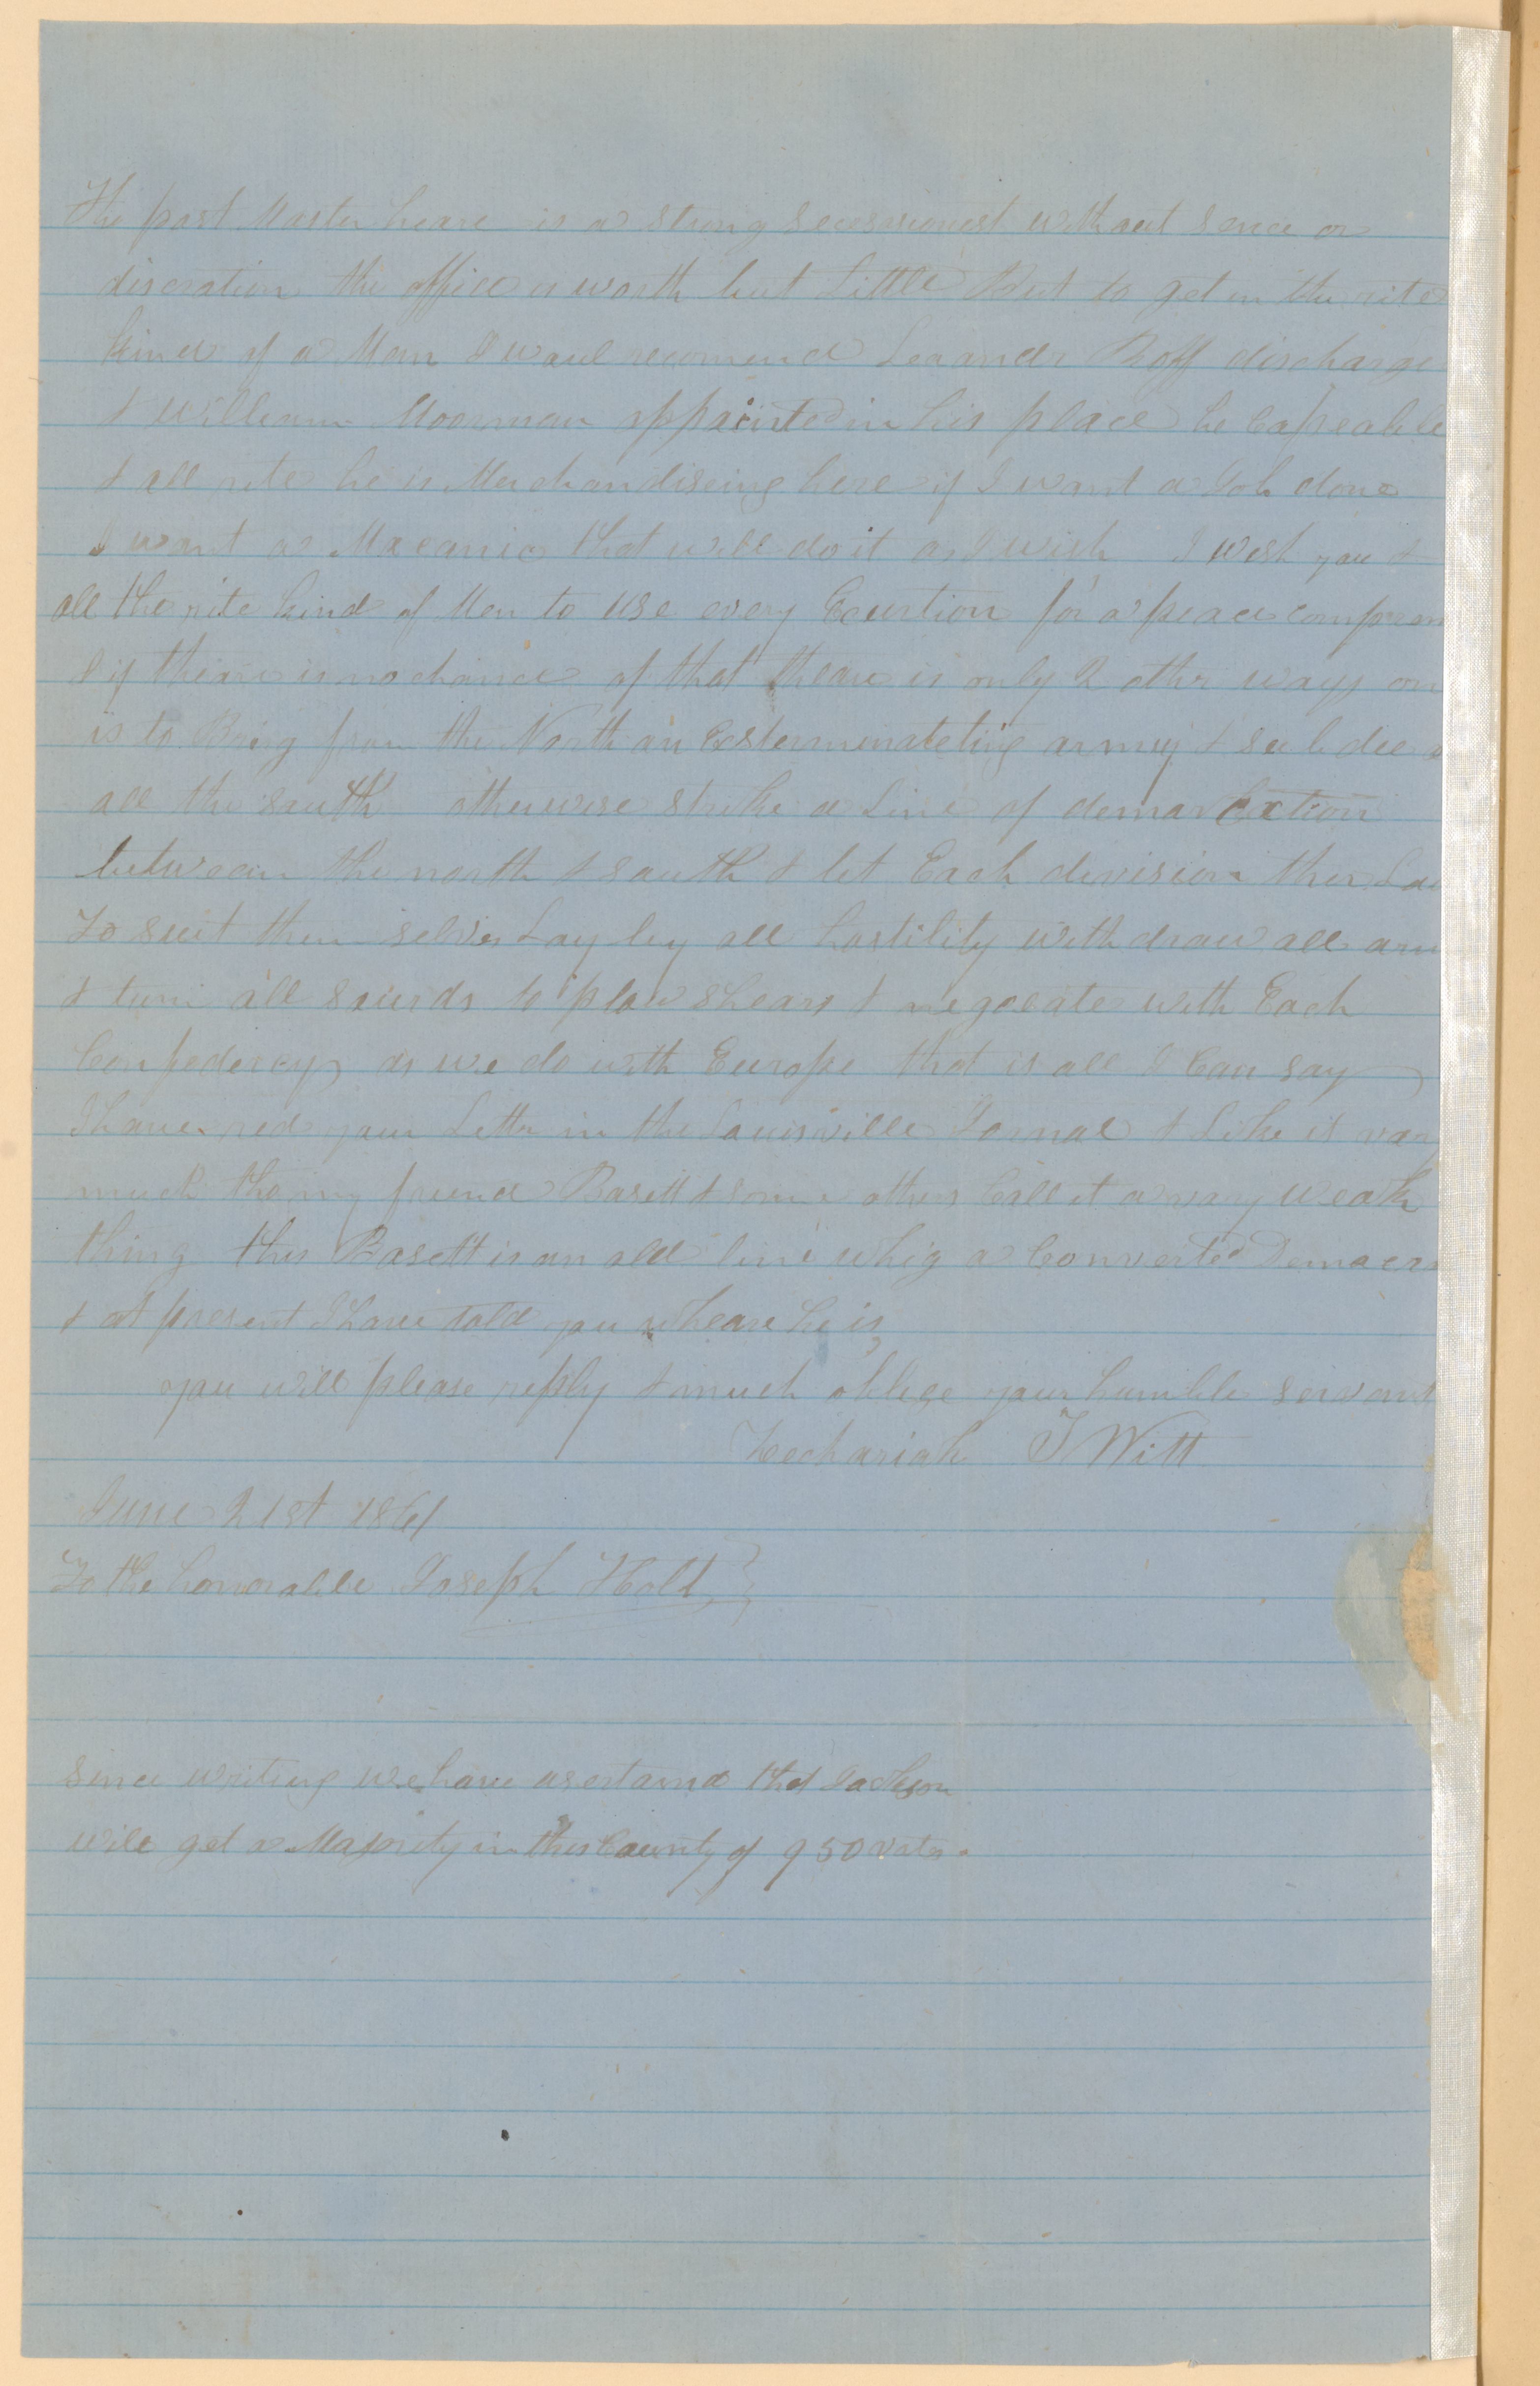 The post Master heare is a strong secessionest without sence or
discration the office is worth but Little But to get in the rite
kind of a Man I woul recomend Leaandr Roff discharge
& William Moorman appointed in his place he Capeable
& all rite he is Merchandiseing here if I want a Job done
I want a Macanic that will do it as I wish I wish you &
all the rite kind of Men to use every Exurtion for a peace comprom
& if theare is no chance of that theare is only 2 other ways on
is to Bring from the North an Exsterminateting army & subdue
all the south otherwise strike a Line of demarkation
between the north & south & let Each devision ther La
To suit them selves Lay by all hostility withdraw all arm
& turn all sourds to plow shears & negoeate with Each
Confedercy as we do with Europe that is all I Can say
I have red your Letter in the Louisville Jornal & Like it vary
much tho my friend Basett & some others Call it a vary weak
thing this Basett is an old line whig a Converted Demacra
& at present I have told you wheare he is
you will please reply & much oblege your humble servant
Zechariah T Witt
June 21st 1861
To the honorable Joseph Holt
since writing we have asertaind that Jackson
will get a Majority in this County of 950 votes